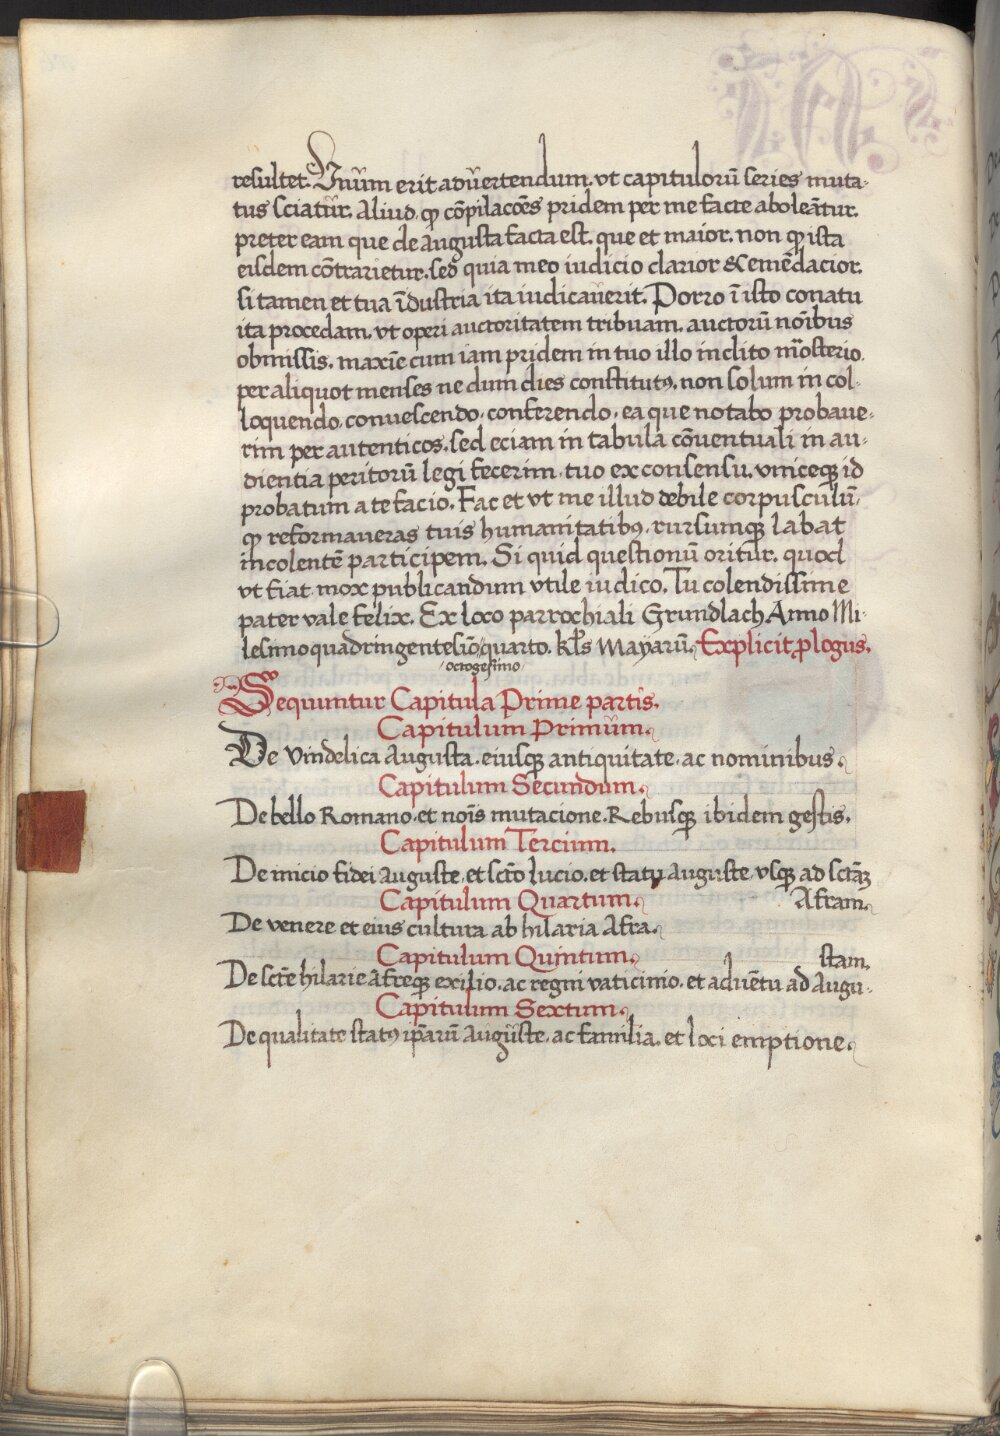 resultet. Vnũm erit adũertendum. vt capitulorũ series muta-
tus sciatũr. Aliud. ꝙ cõpilacoẽs pridem per me facte aboleãtur.
preter eam que de augusta facta est. que et maior. non ꝙ ista
eisdem cõtrarietur. sed quia meo iudicio clarior & emẽdacior.
si tamen et tua ĩdustria ita iudicaũerit. Porro ĩ isto conatu
ita procedam. vt operi auctoritatem tribuam. auctorũ noĩbus
obmissis. maxĩe cum iam pridem in tuo illo inclito mõsterio.
per aliquot menses ne dum dies constitutꝰ. non solum in col-
loquendo. convescendo. conferendo. ea que notabo probaue-
rim per autenticos. sed eciam in tabula cõuentuali in au-
dientia peritorũ legi fecerim. tuo ex consensu. vnicoqꝫ id
probatum a te facio. Fac et vt me illud debile corpusculũ.
ꝙ reformaueras tuis humanitatibꝰ. rursumqꝫ labat
incolentẽ participem. Si quid questionũ oritũr. quod
vt fiat mox publicandum vtile iudico. Tu colendissime
pater vale felix. Ex loco parrochiali Grundlach Anno Mi-
lesimo quadringentesiõ quarto. kl̃s Mayarũ. Explicit ꝓlogus.
octogesimo
Sequuntur Capitula Prime partis.
Capitulum Primũm.
De Vindelica Augusta. eiusqꝫ antiquitate. ac nominibus.
Capitulum Secundum.
De bello Romano. et noĩs mutacione. Rebusqꝫ ibidem gestis.
Capitulum Tercium.
De inicio fidei Auguste. et scto lucio. et statu Auguste. vsqꝫ ad sctãꝫ
Capitulum Quartum. Afram.
De venere et eius cultura ab hilaria Afra.
Capitulum Quintum. stam.
De scte hilarie afreqꝫ exilio. ac regni vaticinio. et aduẽtu ad Augu-
Capitulum Sextum.
De qualitate statꝰ ip̃arũ Augũste. ac familia. et loci emptione.